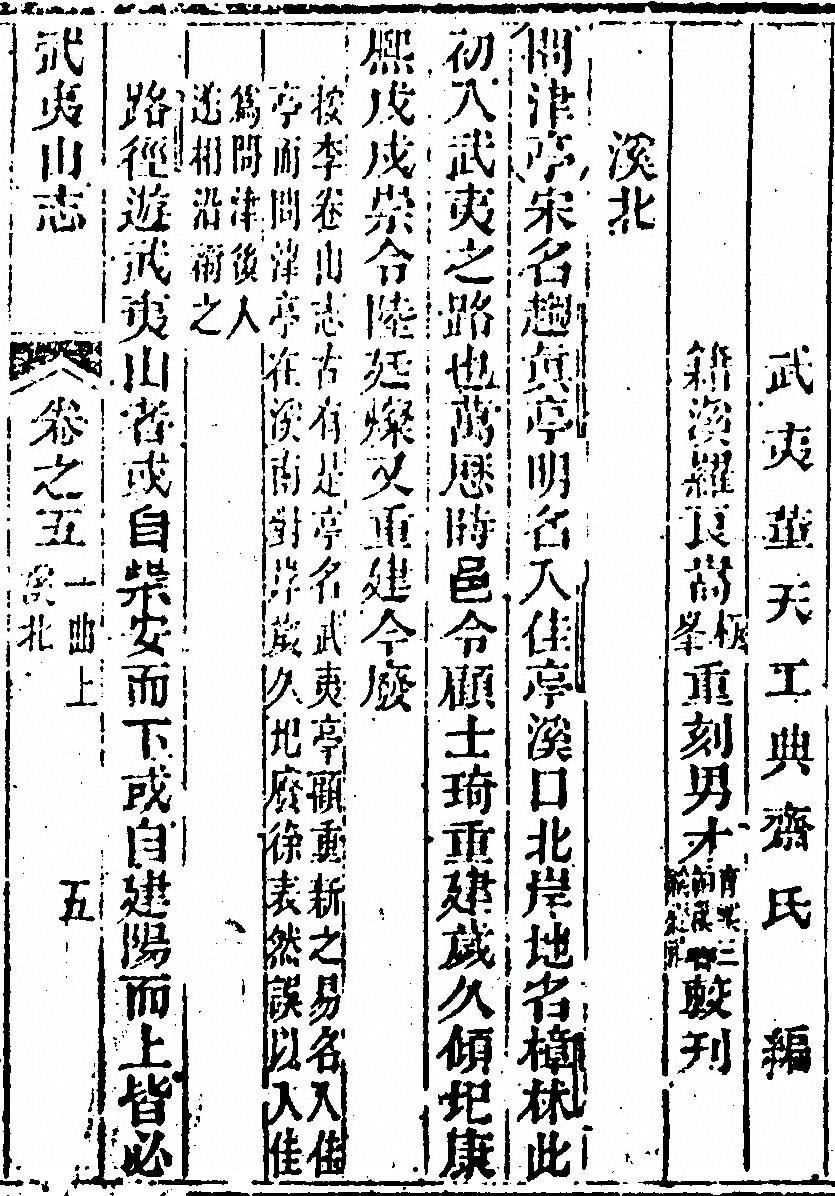 武夷董天工典齋氏 編
籍溪羅良嵩極峯重刻男才較刊
溪北
問津亭宋名趨真亭明名入佳亭溪口北岸地名樟林此
初入武夷之路也萬厯時邑令顧士琦重建歲久傾圯康
熙戊戌崇令陸廷燦又重建今廢
按李卷山志古有是亭名武夷亭顧重新之易名入佳
亭而問津亭在溪南對岸歲久圯廢徐表然誤以入佳
為問津後人
遂相沿襲之
路徑遊武夷山者或自崇安而下或自建陽而上皆必
武夷山志
卷之五
一曲上
溪北
五